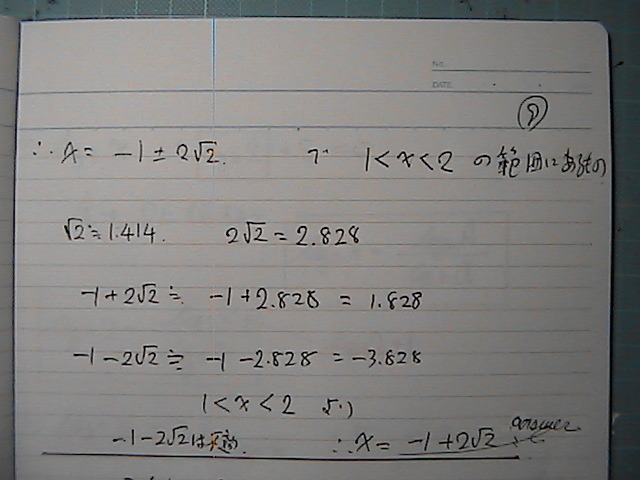 No.
DATE
⑨
∴ x = -1 ± 2√2. で 1 < x < 2 の範囲にあるもの
√2 ≒ 1.414. 2√2 = 2.828
-1 + 2√2 ≒ -1 + 2.828 = 1.828
-1 - 2√2 ≒ -1 - 2.828 = -3.828
1 < x < 2 より
-1 - 2√2 は不適. ∴ x = -1 + 2√2 answer